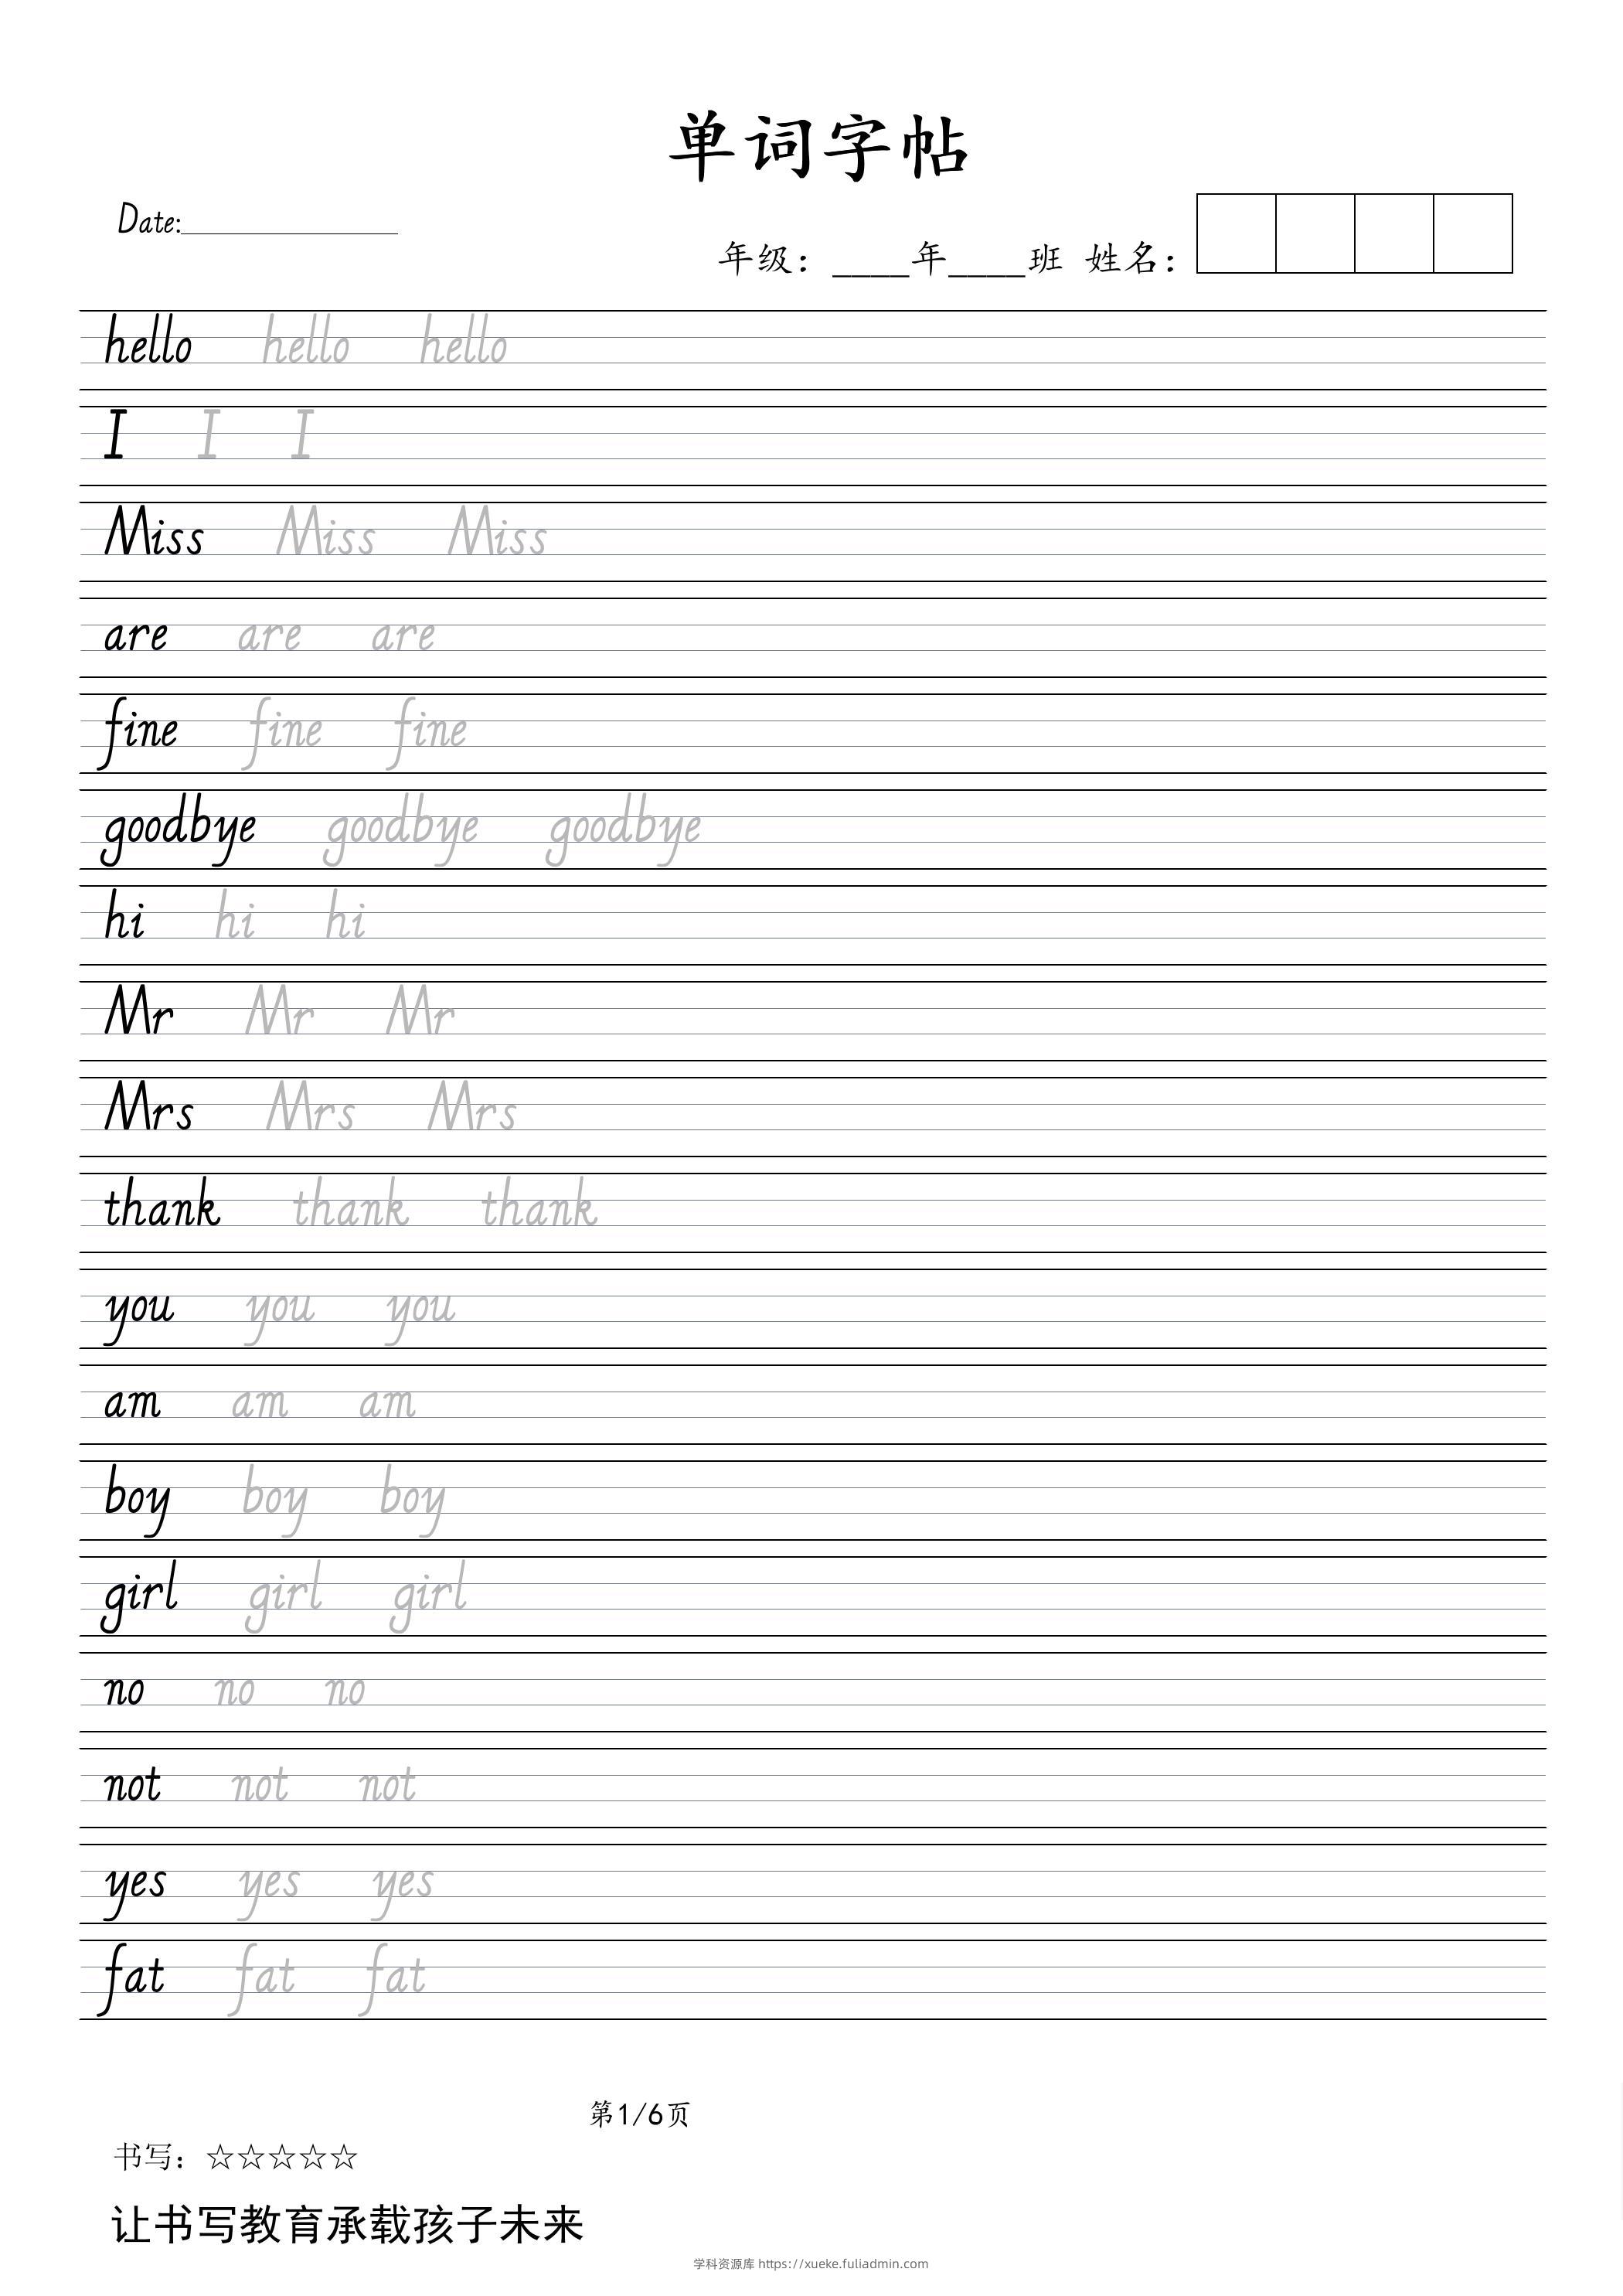 单词字帖
Date:______________
年级：____年____班 姓名：
hello hello hello
I I I
Miss Miss Miss
are are are
fine fine fine
goodbye goodbye goodbye
hi hi hi
Mr Mr Mr
Mrs Mrs Mrs
thank thank thank
you you you
am am am
boy boy boy
girl girl girl
no no no
not not not
yes yes yes
fat fat fat
第1/6页
书写：☆☆☆☆☆
让书写教育承载孩子未来
学科资源库 https://xueke.fuliadmin.com